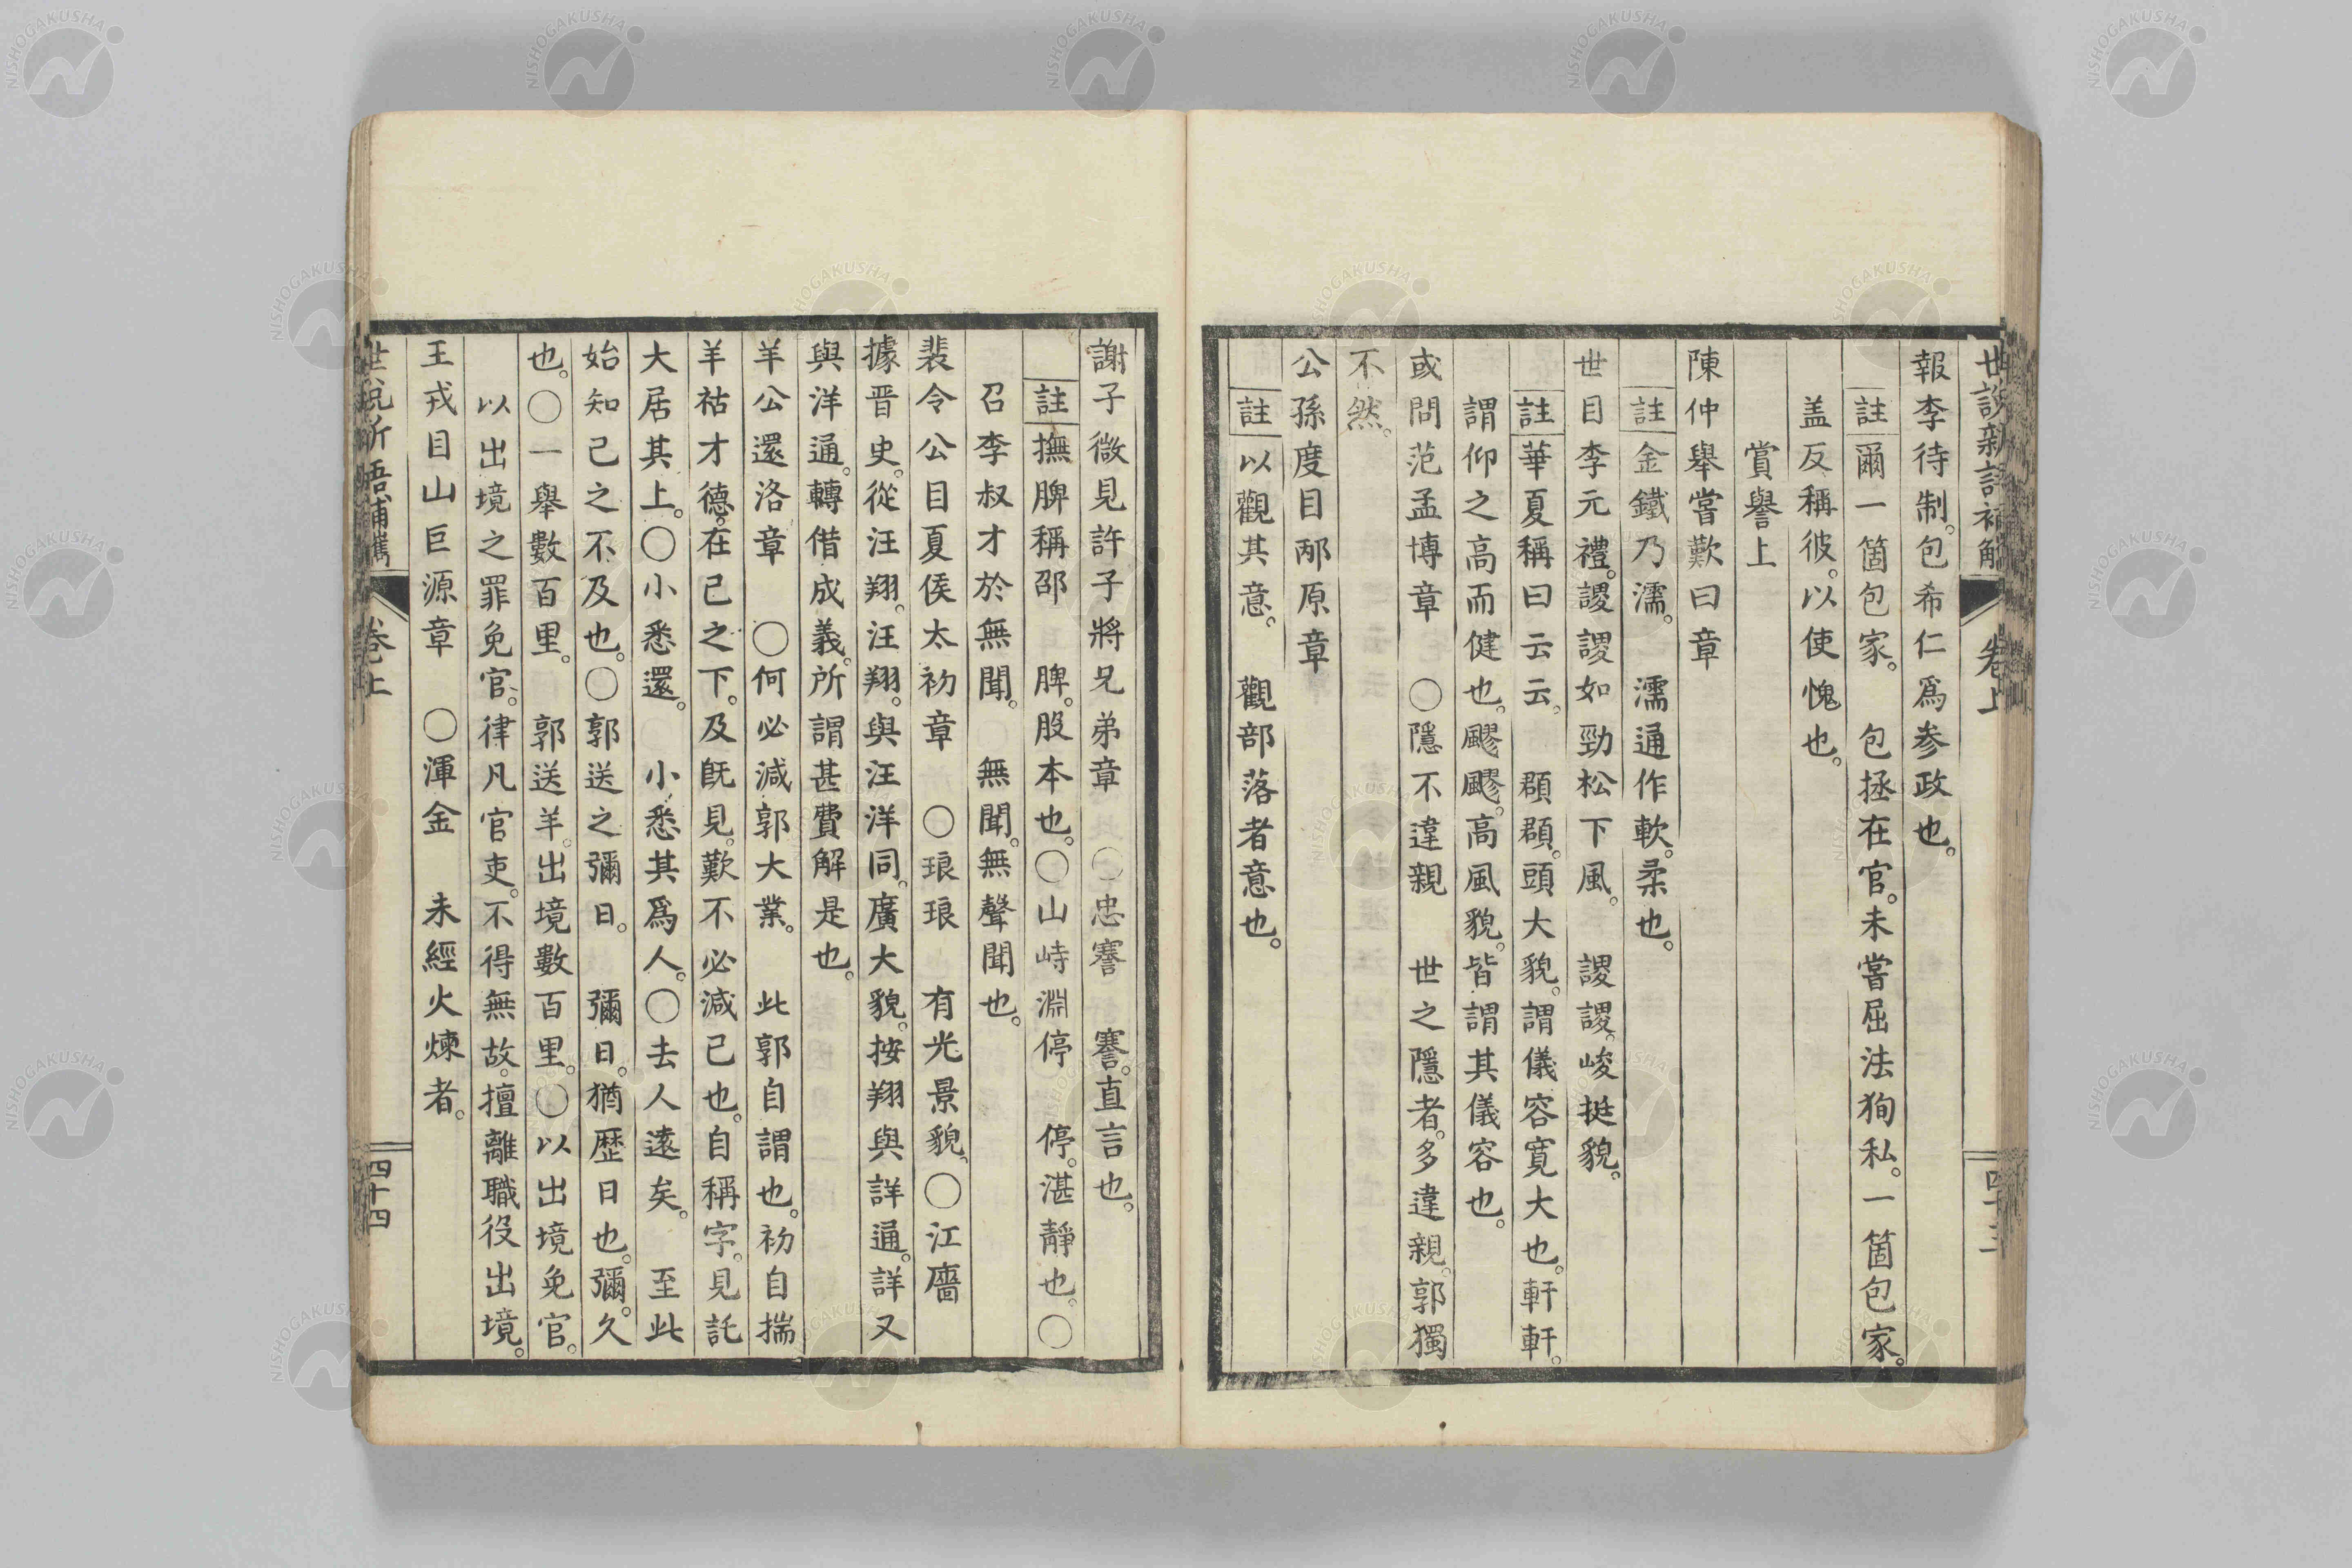 報李待制。包希仁爲參政也。
註 爾一箇包家。 包拯在官。未嘗屈法狥私。一箇包家。
盖反稱彼。以使愧也。
賞譽上
陳仲舉嘗歎曰章
註 金鐵乃濡。 濡通作軟。柔也。
世目李元禮。謖謖如勁松下風。 謖謖。峻挺貌。
註 華夏稱曰云云。 頵頵。頭大貌。謂儀容寛大也。軒軒。
謂仰之高而健也。飂飂。高風貌。皆謂其儀容也。
或問范孟博章 〇隱不違親 世之隱者。多違親。郭獨
不然。
公孫度目邴原章
註 以觀其意。 觀部落者意也。
謝子微見許子將兄弟章 〇忠謇 謇。直言也。
註 撫髀稱邵 髀。股本也。〇山峙淵停 停。湛靜也。〇
召李叔才於無聞。 無聞。無聲聞也。
裴令公目夏侯太初章 〇琅琅 有光景貌。〇江廧
據晋史。從汪翔。汪翔。與汪洋同。廣大貌。按翔與詳通。詳又
與洋通。轉借成義。所謂甚費解是也。
羊公還洛章 〇何必減郭大業。 此郭自謂也。初自揣
羊祜才德。在己之下。及旣見。歎不必減己也。自稱字。見託
大居其上。〇小悉還。 小悉其爲人。〇去人遠矣。 至此
始知己之不及也。〇郭送之彌日。 彌日。猶歴日也。彌。久
也。〇一舉數百里。 郭送羊。出境數百里。〇以出境免官。
以出境之罪免官。律凡官吏。不得無故。擅離職役出境。
王戎目山巨源章 〇渾金 未經火煉者。
卷上
四十四